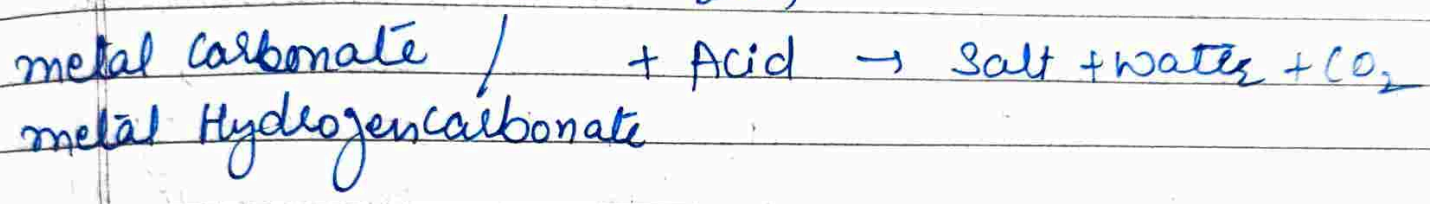 metal carbonate / + Acid → Salt + water + CO₂
metal Hydrogencarbonate